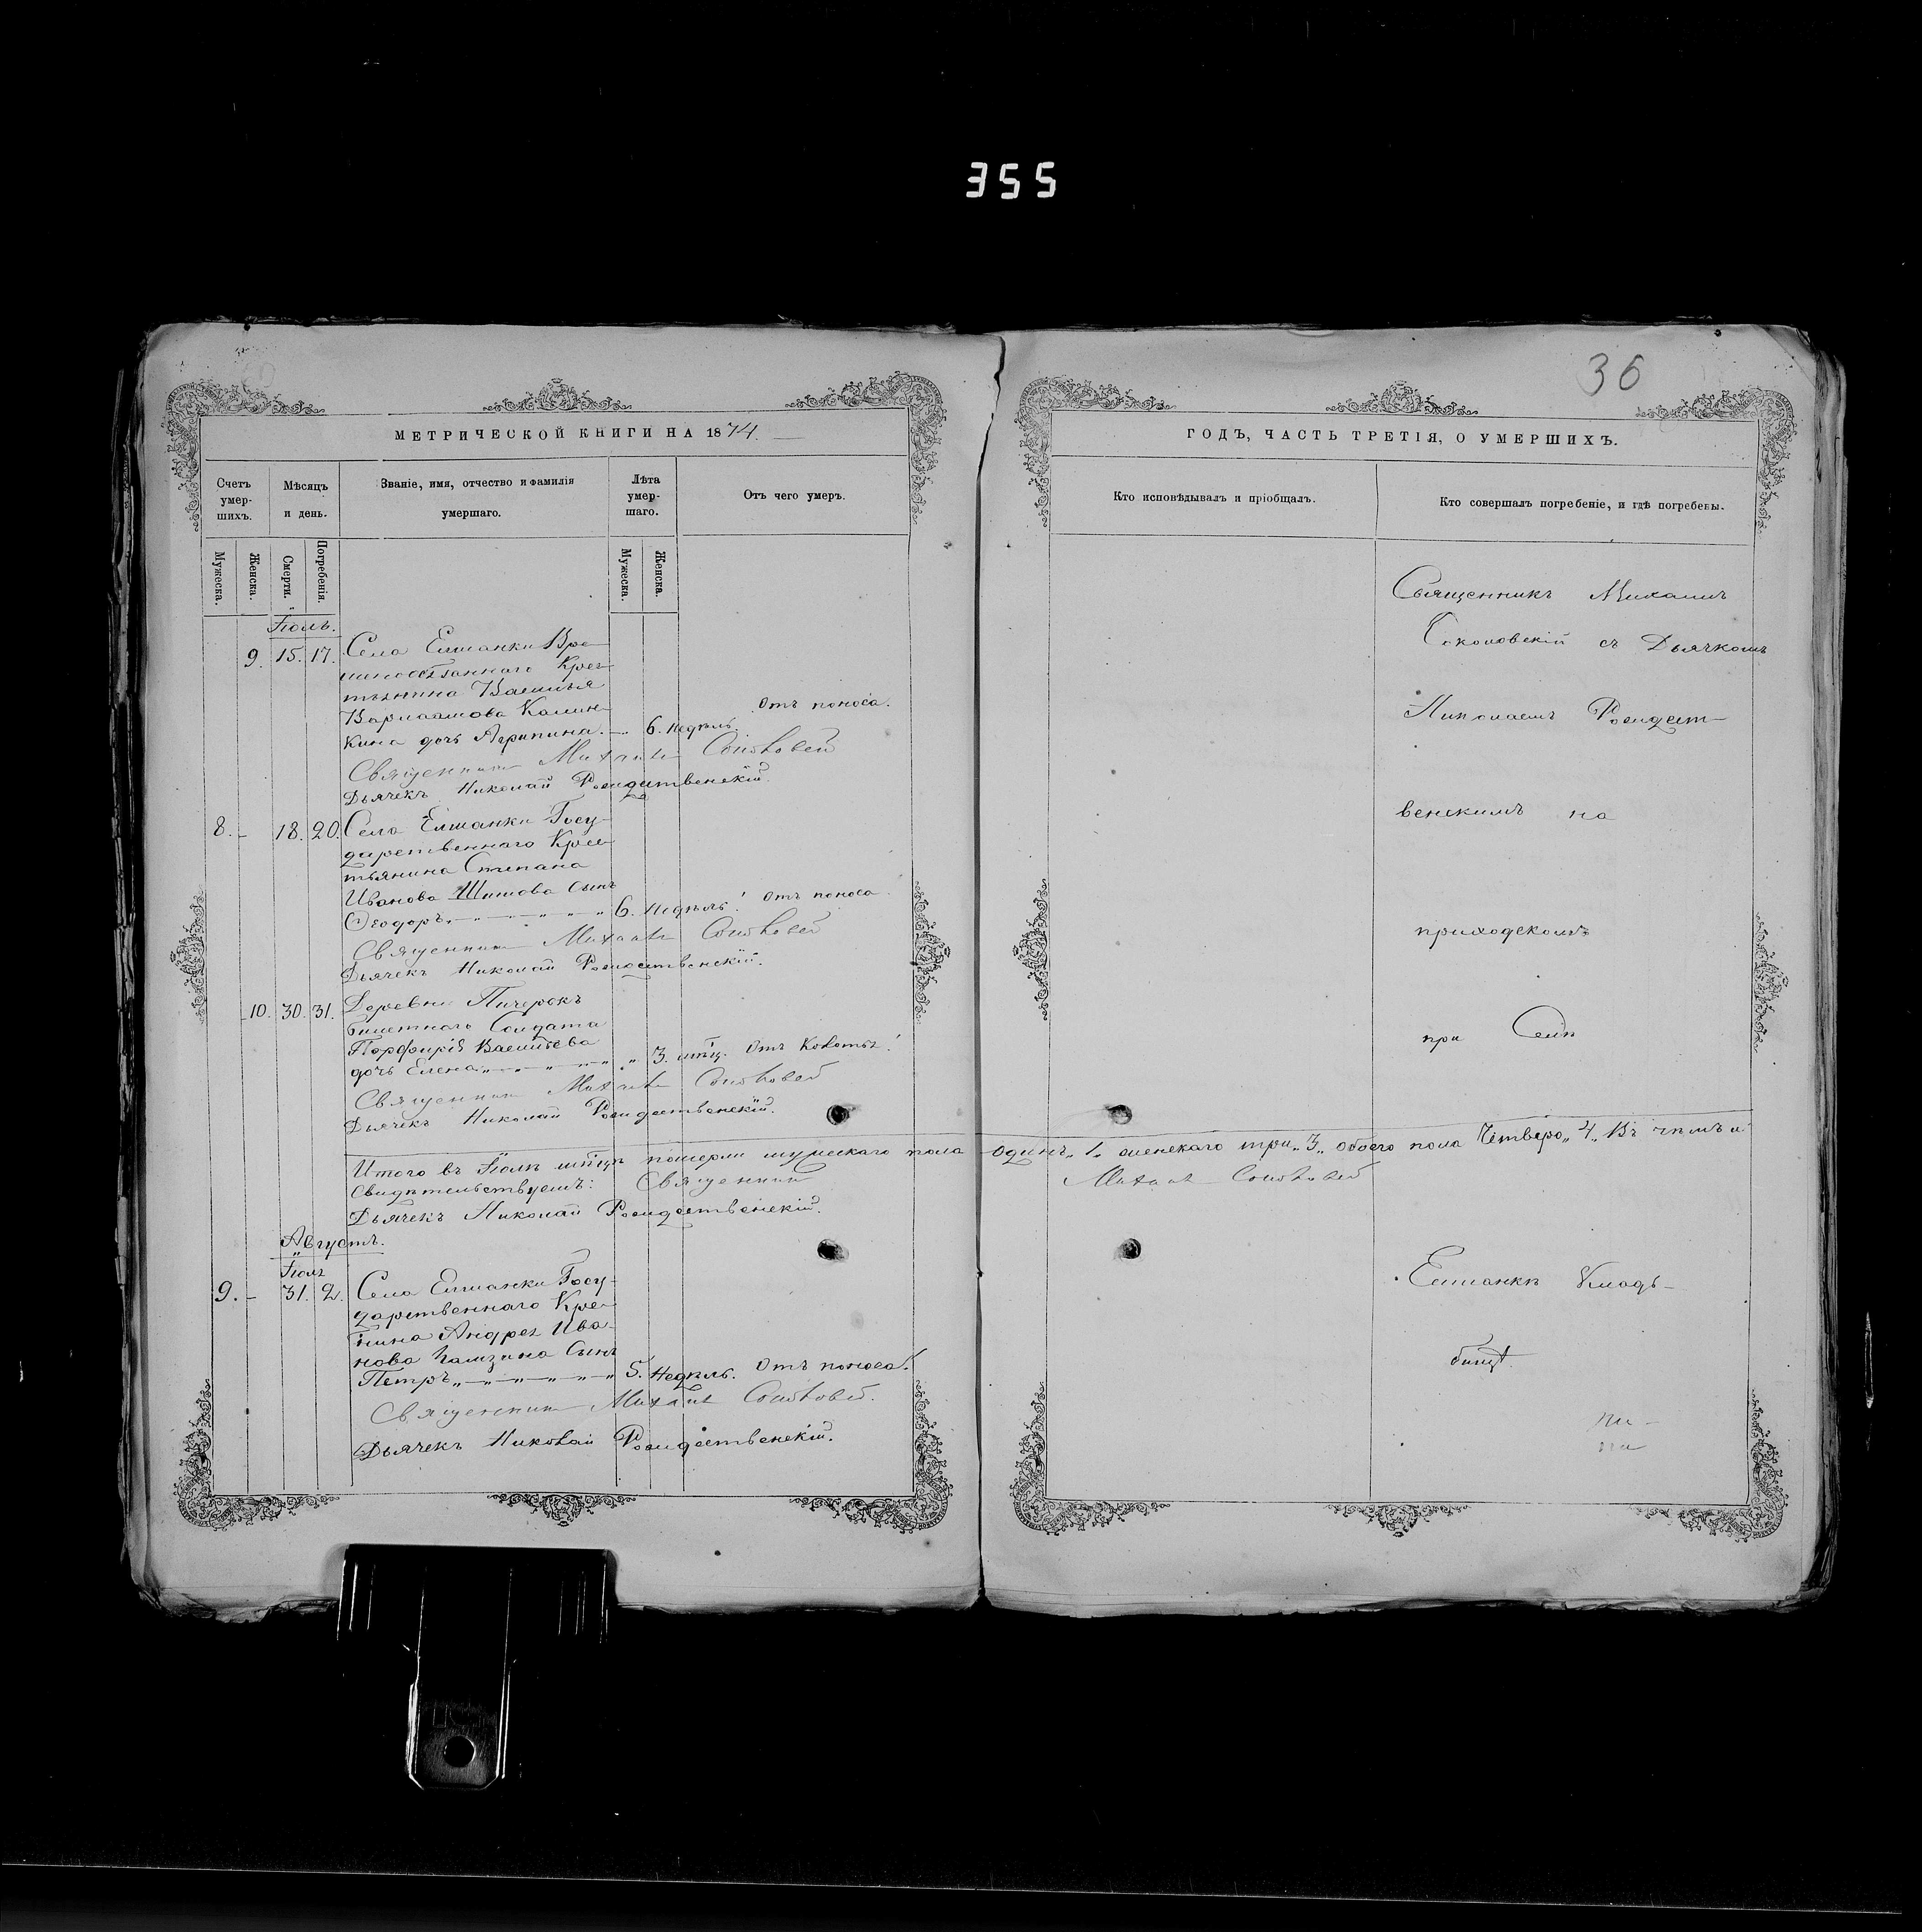 355
36
МЕТРИЧЕСКОЙ КНИГИ НА 1874.
ГОДЪ, ЧАСТЬ ТРЕТІЯ, О УМЕРШИХЪ.
Счетъ умер-шихъ.
Мѣсяцъ и день.
Званіе, имя, отчество и фамилія умершаго.
Лѣта умер-шаго.
Отъ чего умеръ.
Кто исповѣдывалъ и пріобщалъ.
Кто совершалъ погребеніе, и гдѣ погребены.
Мужеска.
Женска.
Смерти.
Погребенія.
Мужеска.
Женска.
Іюль.
9. 15. 17. Села Елшанки Вре-
меннообязаннаго Крес-
тьянина Василья
Варлаамова Калин-
кина дочь Агрипина. — 6. недѣль. Отъ поноса.
Священникъ Михаилъ
Дьячекъ Николай Рождественскій.
8. - 18. 20. Села Елшанки Госу-
дарственнаго Крес-
тьянина Степана
Иванова Шишова сынъ
Ѳеодоръ 6. недѣль! Отъ поноса.
Священникъ Михаилъ
Дьячекъ Николай Рождественскій.
10. 30. 31. Деревни Пичерокъ
билетнаго Солдата
Порфирія Васильева
дочь Елена 3. мѣц. Отъ
Священникъ Михаилъ
Дьячекъ Николай Рождественскій.
Итого въ Іюлѣ мѣсяцѣ померли мужескаго пола одинъ „1„ женскаго три „3„ обоего пола Четверо „4„ Въ чемъ и
свидѣтельствуемъ: Священникъ Михаилъ
Дьячекъ Николай Рождественскій.
Августъ.
Іюль
9. - 31. 2. Села Елшанки Госу-
дарственнаго Кре-
нина Андрея Ива-
нова сынъ
Петръ 5. недѣль. Отъ поноса!
Священникъ Михаилъ
Дьячекъ Николай Рождественскій.
Священникъ Михаилъ
Соколовскій съ Дьячкомъ
Николаемъ Рождест-
венскимъ на
приходскомъ
при Селѣ
Елшанкѣ Кладъ-
бищѣ.